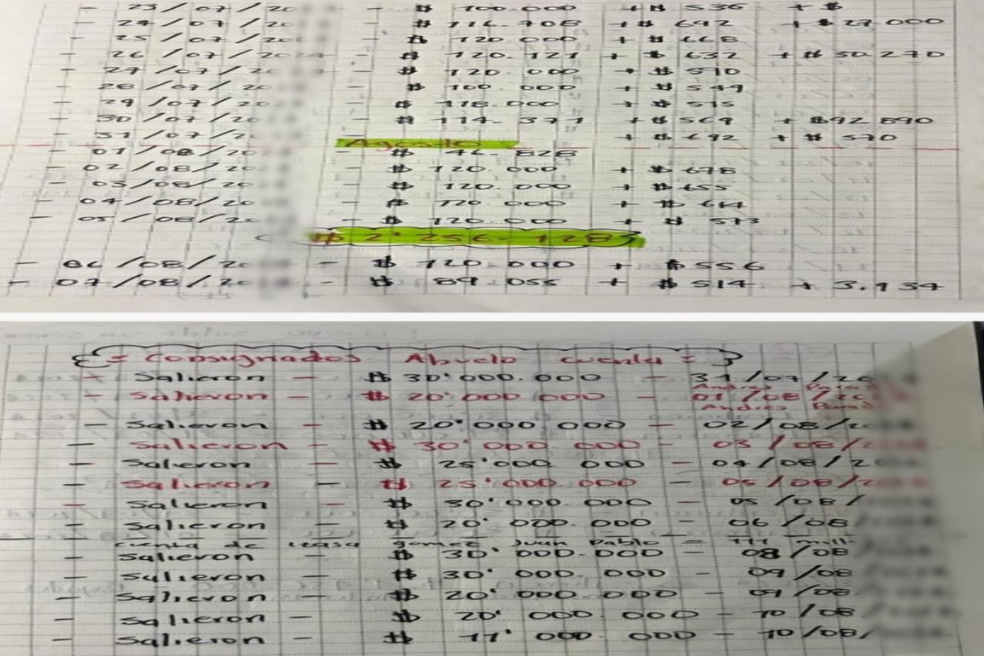 - 23/07/20 - $ 100.000 + $ 536 + $
- 24/07/20 - $ 116.908 + $ 692 + $ 27.000
- 25/07/20 - $ 120.000 + $ 668
- 26/07/20 - $ 120.121 + $ 632 + $ 30.270
- 27/07/20 - $ 120.000 + $ 510
- 28/07/20 - $ 100.000 + $ 549
- 29/07/20 - $ 118.000 + $ 515
- 30/07/20 - $ 114.371 + $ 569 + $92.890
- 31/07/20 + $ 692 + $ 570
Agosto
- 01/08/20 - $ 46.828
- 02/08/20 - $ 120.000 + $ 678
- 03/08/20 - $ 120.000 + $ 655
- 04/08/20 - $ 120.000 + $ 614
- 05/08/20 - $ 120.000 + $ 573
$ 2'256-128
- 06/08/20 - $ 120.000 + $ 556
- 07/08/20 - $ 89.055 + $ 514 + 3.934
= Consignados Abuelo cuenta =
- Salieron - $ 30'000.000 - 31/07/20
Andres
- Salieron - $ 20'000.000 - 01/08/20
Andres
- Salieron - $ 20'000.000 - 02/08/20
- Salieron - $ 30'000.000 - 03/08/20
- Salieron - $ 25'000.000 - 04/08/20
- Salieron - $ 25'000.000 - 05/08/20
- Salieron - $ 30'000.000 - 05/08/
- Salieron - $ 20'000.000 - 06/08/
cuenta de gomez Juan Pablo =
- Salieron - $ 30'000.000 - 08/08
- Salieron - $ 30'000.000 - 09/08
- Salieron - $ 20'000.000 - 09/08/
- Salieron - $ 20'000.000 - 10/08/
- Salieron - $ 11'000.000 - 10/08/